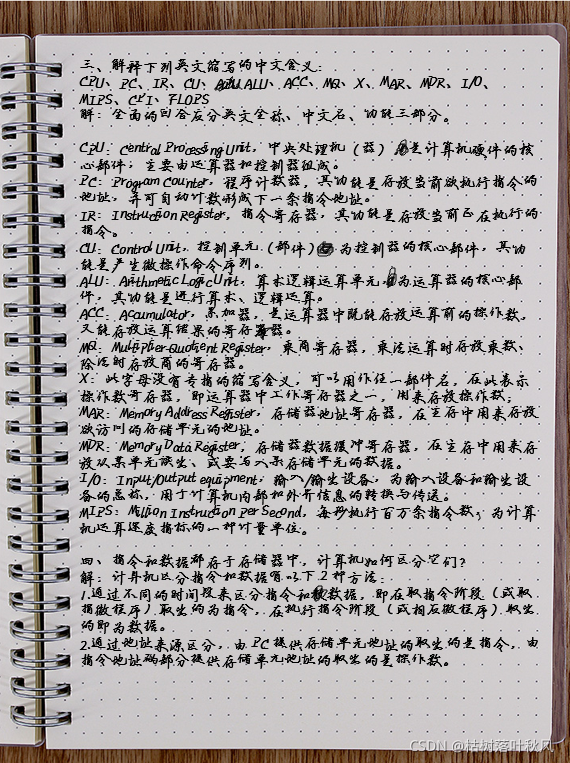 三、解释下列英文缩写的中文含义：
CPU、PC、IR、CU、ALU、ACC、MQ、X、MAR、MDR、I/O、
MIPS、CPI、FLOPS
解：全面的回答应分英文全称、中文名、功能三部分。
CPU：Central Processing Unit，中央处理机（器）是计算机硬件的核
心部件，主要由运算器和控制器组成。
PC：Program Counter，程序计数器，其功能是存放当前欲执行指令的
地址，并可自动计数形成下一条指令地址。
IR：Instruction Register，指令寄存器，其功能是存放当前正在执行的
指令。
CU：Control Unit，控制单元（部件）为控制器的核心部件，其功
能是产生微操作命令序列。
ALU：Arithmetic Logic Unit，算术逻辑运算单元，为运算器的核心部
件，其功能是进行算术、逻辑运算。
ACC：Accumulator，累加器，是运算器中既能存放运算前的操作数，
又能存放运算结果的寄存器。
MQ：Multiplier-Quotient Register，乘商寄存器，乘法运算时存放乘数、
除法时存放商的寄存器。
X：此字母没有专指的缩写含义，可以用作任一部件名，在此表示
操作数寄存器，即运算器中工作寄存器之一，用来存放操作数；
MAR：Memory Address Register，存储器地址寄存器，在主存中用来存放
欲访问的存储单元的地址。
MDR：Memory Data Register，存储器数据缓冲寄存器，在主存中用来存
放从某单元读出、或要写入某存储单元的数据。
I/O：Input/Output equipment，输入/输出设备，为输入设备和输出设
备的总称，用于计算机内部和外界信息的转换与传送。
MIPS：Million Instruction per Second，每秒执行百万条指令数，为计算
机运算速度指标的一种计量单位。
四、指令和数据都存于存储器中，计算机如何区分它们？
解：计算机区分指令和数据有以下2种方法：
1.通过不同的时间段来区分指令和数据，即在取指令阶段（或取
指微程序）取出的为指令，在执行指令阶段（或相应微程序）取出
的即为数据。
2.通过地址来源区分，由PC提供存储单元地址的取出的是指令，由
指令地址码部分提供存储单元地址的取出的是操作数。
CSDN @枯树落叶秋风